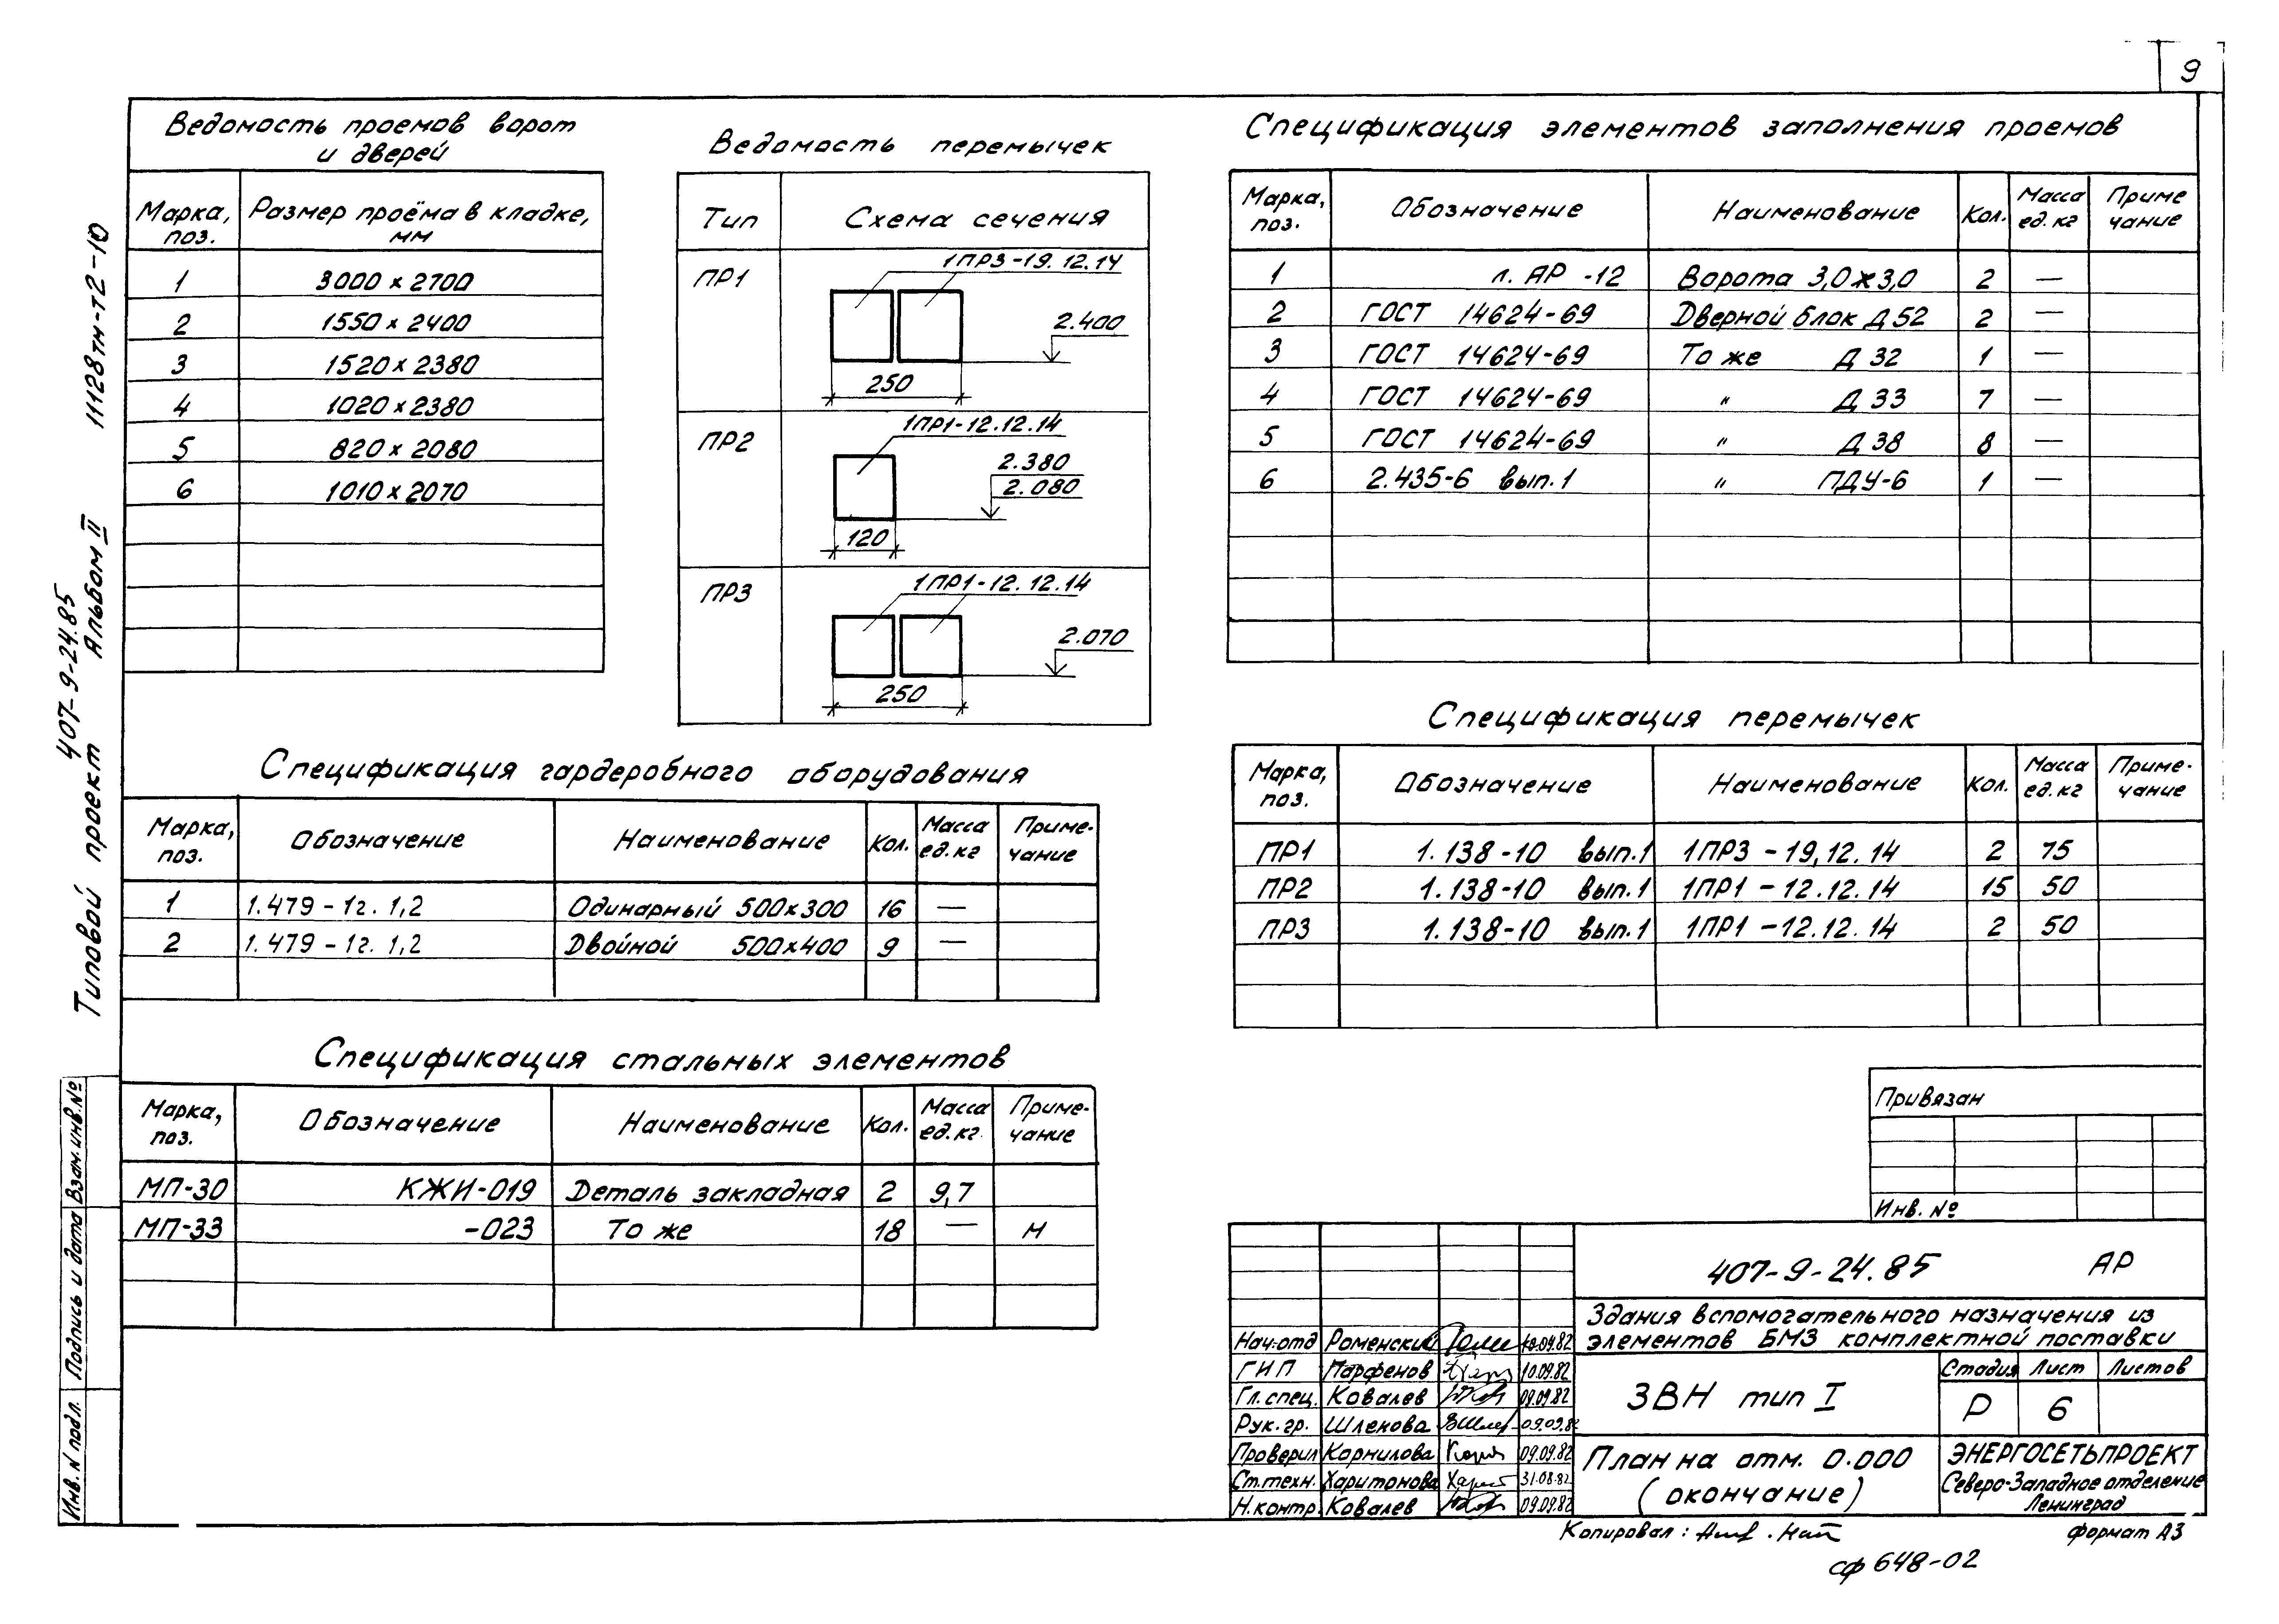 9
Ведомость проемов ворот
и дверей
Марка, поз. Размер проёма в кладке, мм
1 3000 х 2700
2 1550 х 2400
3 1520 х 2380
4 1020 х 2380
5 820 х 2080
6 1010 х 2070
Ведомость перемычек
Тип Схема сечения
ПР1
1ПР3-19.12.14
2.400
250
ПР2
1ПР1-12.12.14
2.380
2.080
120
ПР3
1ПР1-12.12.14
2.070
250
Спецификация элементов заполнения проемов
Марка, поз. Обозначение Наименование Кол. Масса ед. кг Приме чание
1 л. АР -12 Ворота 3,0 х 3,0 2 —
2 ГОСТ 14624-69 Дверной блок Д 52 2 —
3 ГОСТ 14624-69 То же Д 32 1 —
4 ГОСТ 14624-69 " Д 33 7 —
5 ГОСТ 14624-69 " Д 38 8 —
6 2.435-6 вып. 1 " ПДУ-6 1 —
Спецификация перемычек
Марка, поз. Обозначение Наименование Кол. Масса ед. кг Приме- чание
ПР1 1.138-10 вып.1 1ПР3 - 19,12.14 2 75
ПР2 1.138-10 вып.1 1ПР1 - 12.12.14 15 50
ПР3 1.138-10 вып.1 1ПР1 - 12.12.14 2 50
Спецификация гардеробного оборудования
Марка, поз. Обозначение Наименование Кол. Масса ед. кг Приме- чание
1 1.479 - 1г. 1,2 Одинарный 500х300 16 —
2 1.479 - 1г. 1,2 Двойной 500х400 9 —
Спецификация стальных элементов
Марка, поз. Обозначение Наименование Кол. Масса ед. кг. Приме- чание
МП-30 КЖИ-019 Деталь закладная 2 9,7
МП-33 -023 То же 18 — м
Привязан
Инв. №
407-9-24.85 АР
Здания вспомогательного назначения из
элементов БМЗ комплектной поставки
Нач.отд Роменский 10.09.82
ГИП Парфенов 10.09.82
Гл. спец. Ковалев 09.09.82
Рук. гр. Шлекова 09.09.82
Проверил Корнилова 09.09.82
Ст.техн. Харитонова 31.08.82
Н.контр. Ковалев 09.09.82
ЗВН тип I
Стадия Лист Листов
Р 6
План на отм. 0.000
(окончание)
ЭНЕРГОСЕТЬПРОЕКТ
Северо-Западное отделение
Ленинград
Копировал:
формат А3
сф 648-02
Типовой проект 407-9-24.85 Альбом II 11128тм-т2-10
Инв. N подл. Подпись и дата Взам. инв. №